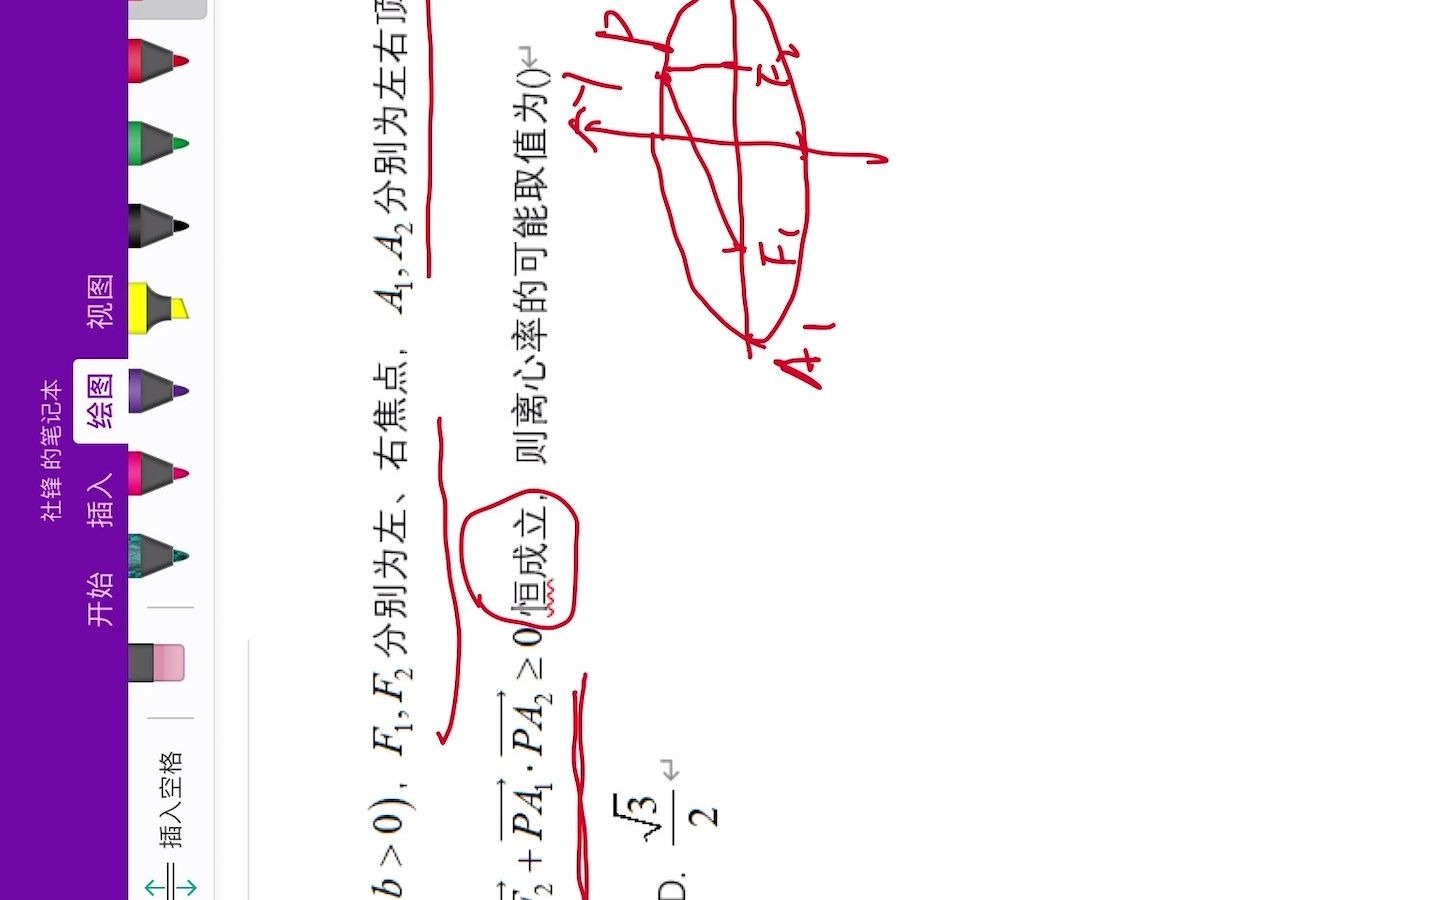 社锋 的笔记本
开始 插入 绘图 视图
插入空格
b > 0)，F₁, F₂ 分别为左、右焦点，A₁, A₂ 分别为左右顶
₂ + PA₁ · PA₂ ≥ 0 恒成立，则离心率的可能取值为()↵
D. √3/2 ↵
P
F₂
F₁
A₁